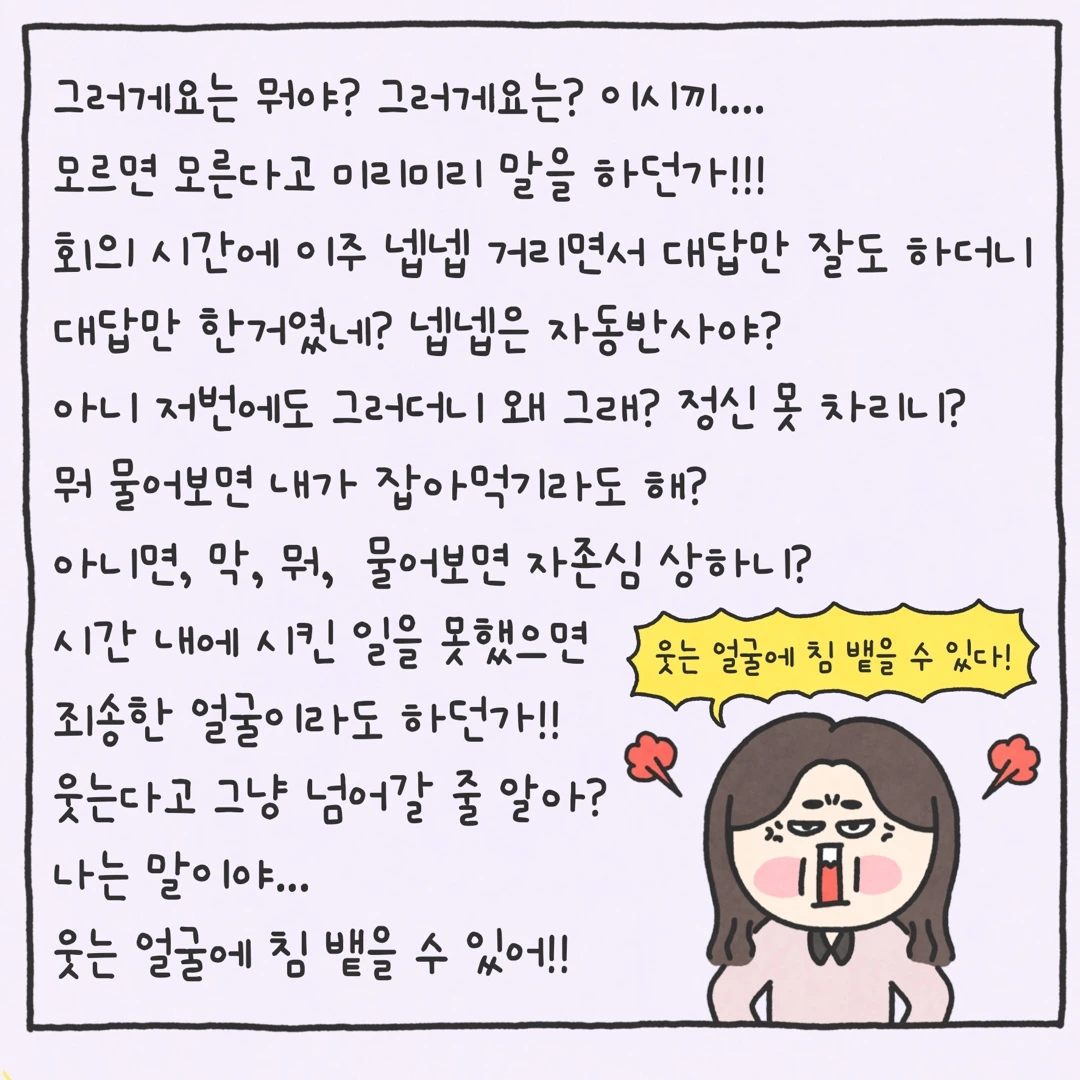 그러게요는 뭐야? 그러게요는? 이시끼....
모르면 모른다고 미리미리 말을 하던가!!!
회의 시간에 이주 넵넵 거리면서 대답만 잘도 하더니
대답만 한거였네? 넵넵은 자동반사야?
아니 저번에도 그러더니 왜 그래? 정신 못 차리니?
뭐 물어보면 내가 잡아먹기라도 해?
아니면, 막, 뭐, 물어보면 자존심 상하니?
시간 내에 시킨 일을 못했으면
죄송한 얼굴이라도 하던가!!
웃는다고 그냥 넘어갈 줄 알아?
나는 말이야...
웃는 얼굴에 침 뱉을 수 있어!!
웃는 얼굴에 침 뱉을 수 있다!